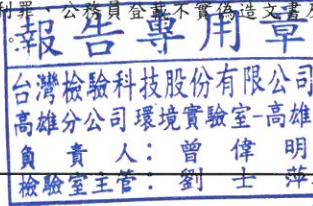 利罪、公務員登載不實偽造文書及
。
報告專用章
台灣檢驗科技股份有限公司
高雄分公司環境實驗室-高雄
負責人：曾偉明
檢驗室主管：劉士萍